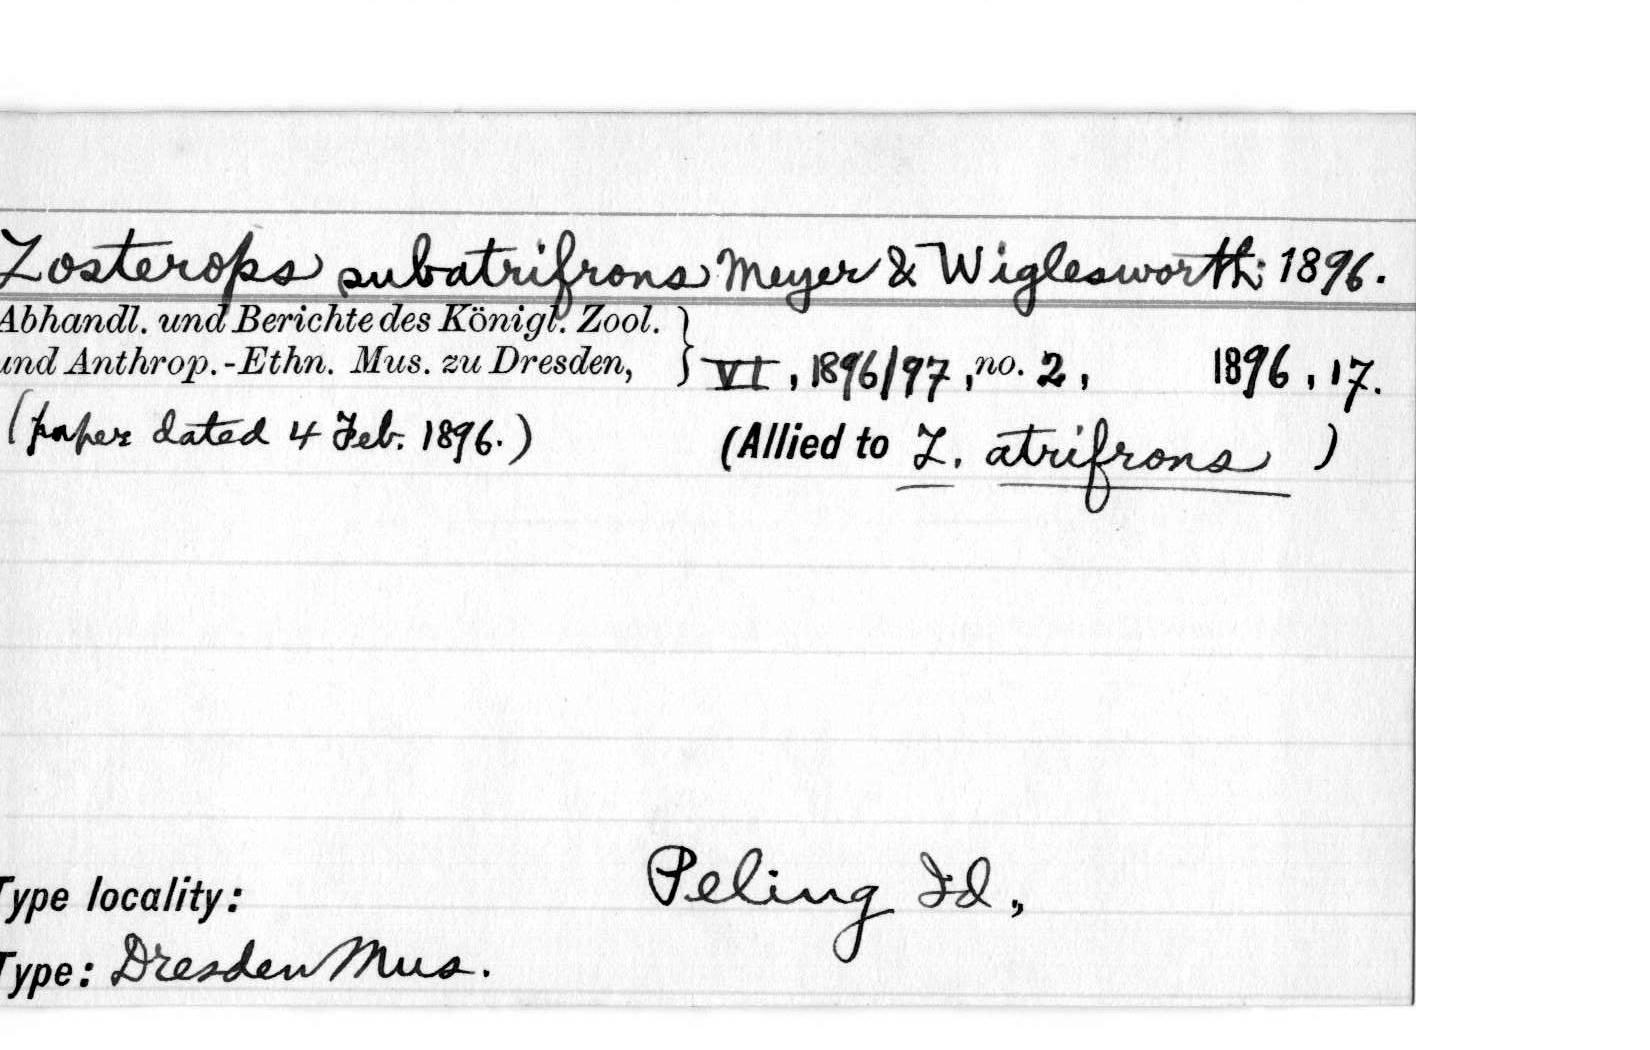 Zosterops subatrifrons Meyer & Wiglesworth: 1896.
Abhandl. und Berichte des Königl. Zool.
und Anthrop.-Ethn. Mus. zu Dresden, } VI, 1896/97, no. 2, 1896, 17.
(paper dated 4 Feb. 1896.) (Allied to Z. atrifrons )
Type locality: Peling Id.,
Type: Dresden Mus.